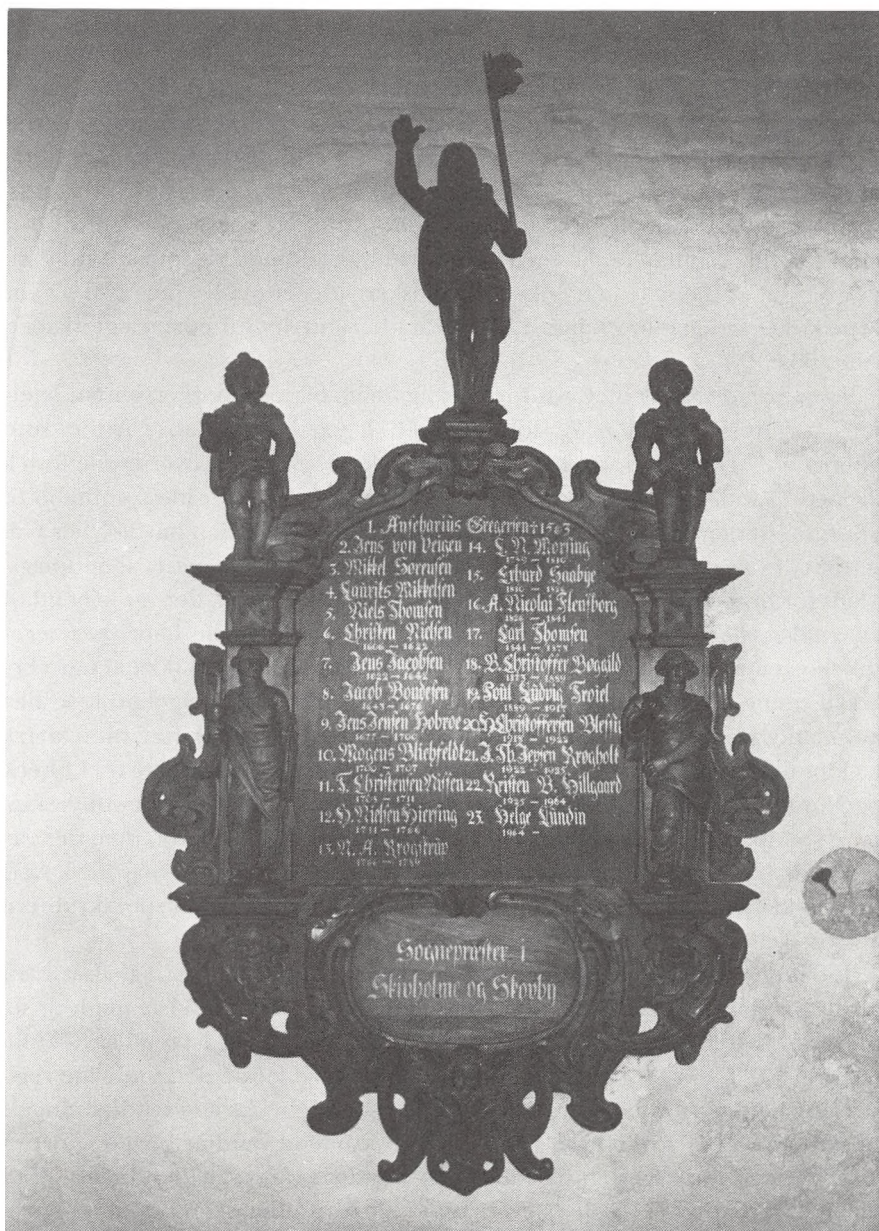 1. Anscharius Gregersen † 1563
2. Jens von Veigen
3. Mikkel Sorensen
4. Laurits Mikkelsen
5. Niels Thomsen
6. Christen Nielsen
1606 - 1622
7. Jens Jacobsen
1622 - 1642
8. Jacob Bondesen
1643 - 1676
9. Jens Jensen Hobroe
1677 - 1700
10. Mogens Blichfeldt
1700 - 1707
11. T. Christensen Nissen
1708 - 1711
12. H. Nielsen Hiersing
1711 - 1766
13. N. A. Krogstrup
1766 - 1789
14. L. N. Morsing
1789 - 1810
15. Erhard Saabye
1810 - 1826
16. A. Nicolai Flensborg
1826 - 1841
17. Carl Thomsen
1841 - 1873
18. B. Christoffer Bøgild
1873 - 1889
19. Poul Ludvig Troiel
1889 - 1917
20. H. Christoffersen
1917 - 1922
21. J. Th. Jepsen Krogholt
1922 - 1925
22. Kristen B. Hillgaard
1925 - 1964
23. Helge Lundin
1964 -
Sognepræster i
Skivholme og Skovby